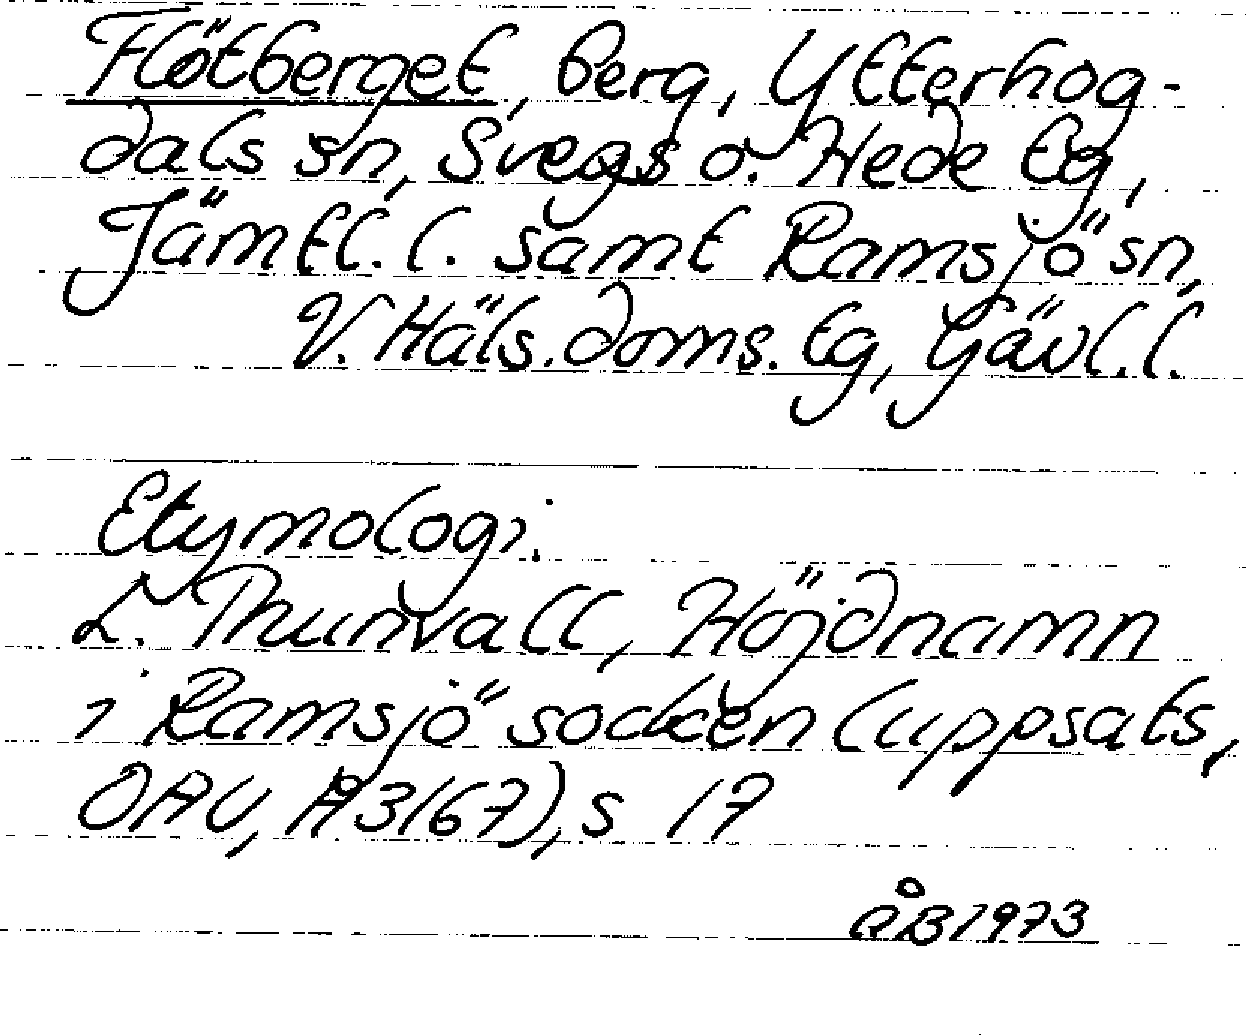 Flötberget, berg, Ytterhog-
dals sn, Svegs o. Hede tg,
Jämtl. l. samt Ramsjö sn,
V. Häls. doms. tg, Gävl. l.
Etymologi.
L. Thunvall, Höjdnamn
i Ramsjö socken (uppsats,
OAU, A 3167), s 17
ÅB 1973